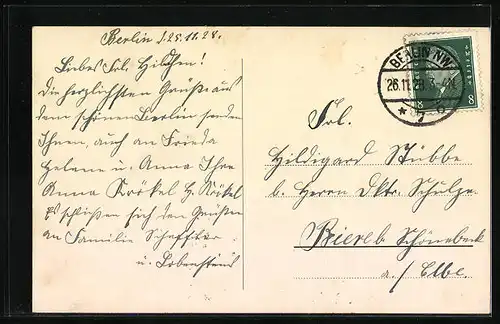 Berlin, d. 25.11.28.
Liebes Frl. Hildchen!
Die herzlichsten Grüße aus
dem schönen Berlin senden
Ihnen, auch an Frieda
Helene u. Anna Ihre
Anna Kröckel H. Röckel
Es schließen sich den Grüßen
an Familie Scheffler
u. Lobenstein
BERLIN NW
26.11.28.
* 7
DEUTSCHES REICH
8 8
Frl.
Hildigard Stübbe
b. Herrn Dktr. Schulze
Biere b. Schönebeck
a./Elbe.